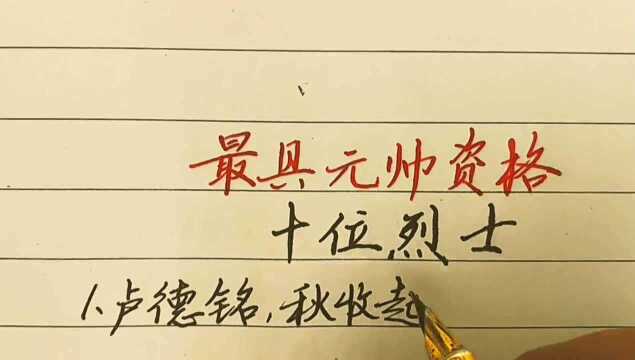 最具元帅资格
十位烈士
1.卢德铭,秋收起